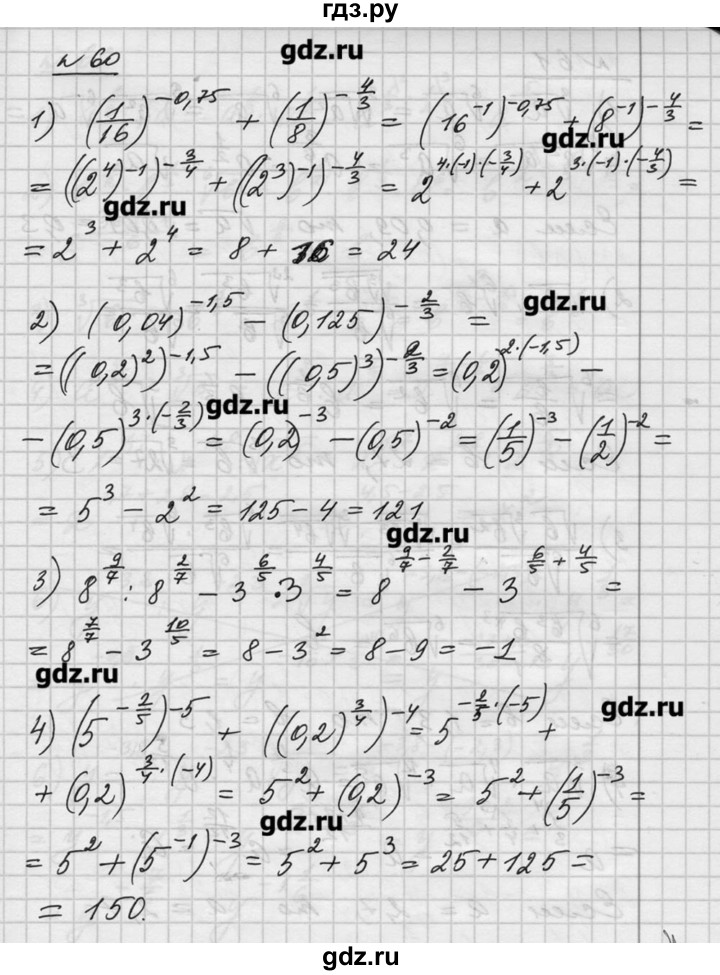 гдз.ру
gdz.ru
№60
1) (1/16)^(-0,75) + (1/8)^(-4/3) = (16^(-1))^(-0,75) + (8^(-1))^(-4/3) =
gdz.ru
= ((2^4)^(-1))^(-3/4) + ((2^3)^(-1))^(-4/3) = 2^(4·(-1)·(-3/4)) + 2^(3·(-1)·(-4/3)) =
gdz.ru
= 2^3 + 2^4 = 8 + 16 = 24
2) (0,04)^(-1,5) - (0,125)^(-2/3) =
gdz.ru
= ((0,2)^2)^(-1,5) - ((0,5)^3)^(-2/3) = (0,2)^(2·(-1,5)) -
gdz.ru
- (0,5)^(3·(-2/3)) = (0,2)^(-3) - (0,5)^(-2) = (1/5)^(-3) - (1/2)^(-2) =
= 5^3 - 2^2 = 125 - 4 = 121
gdz.ru
3) 8^(9/7) : 8^(2/7) - 3^(6/5) · 3^(4/5) = 8^(9/7 - 2/7) - 3^(6/5 + 4/5) =
= 8^(7/7) - 3^(10/5) = 8 - 3^2 = 8 - 9 = -1
gdz.ru
4) (5^(-2/5))^(-5) + ((0,2)^(3/4))^(-4) = 5^(-2/5·(-5)) +
gdz.ru
+ (0,2)^(3/4·(-4)) = 5^2 + (0,2)^(-3) = 5^2 + (1/5)^(-3) =
gdz.ru
= 5^2 + (5^(-1))^(-3) = 5^2 + 5^3 = 25 + 125 =
= 150.
gdz.ru